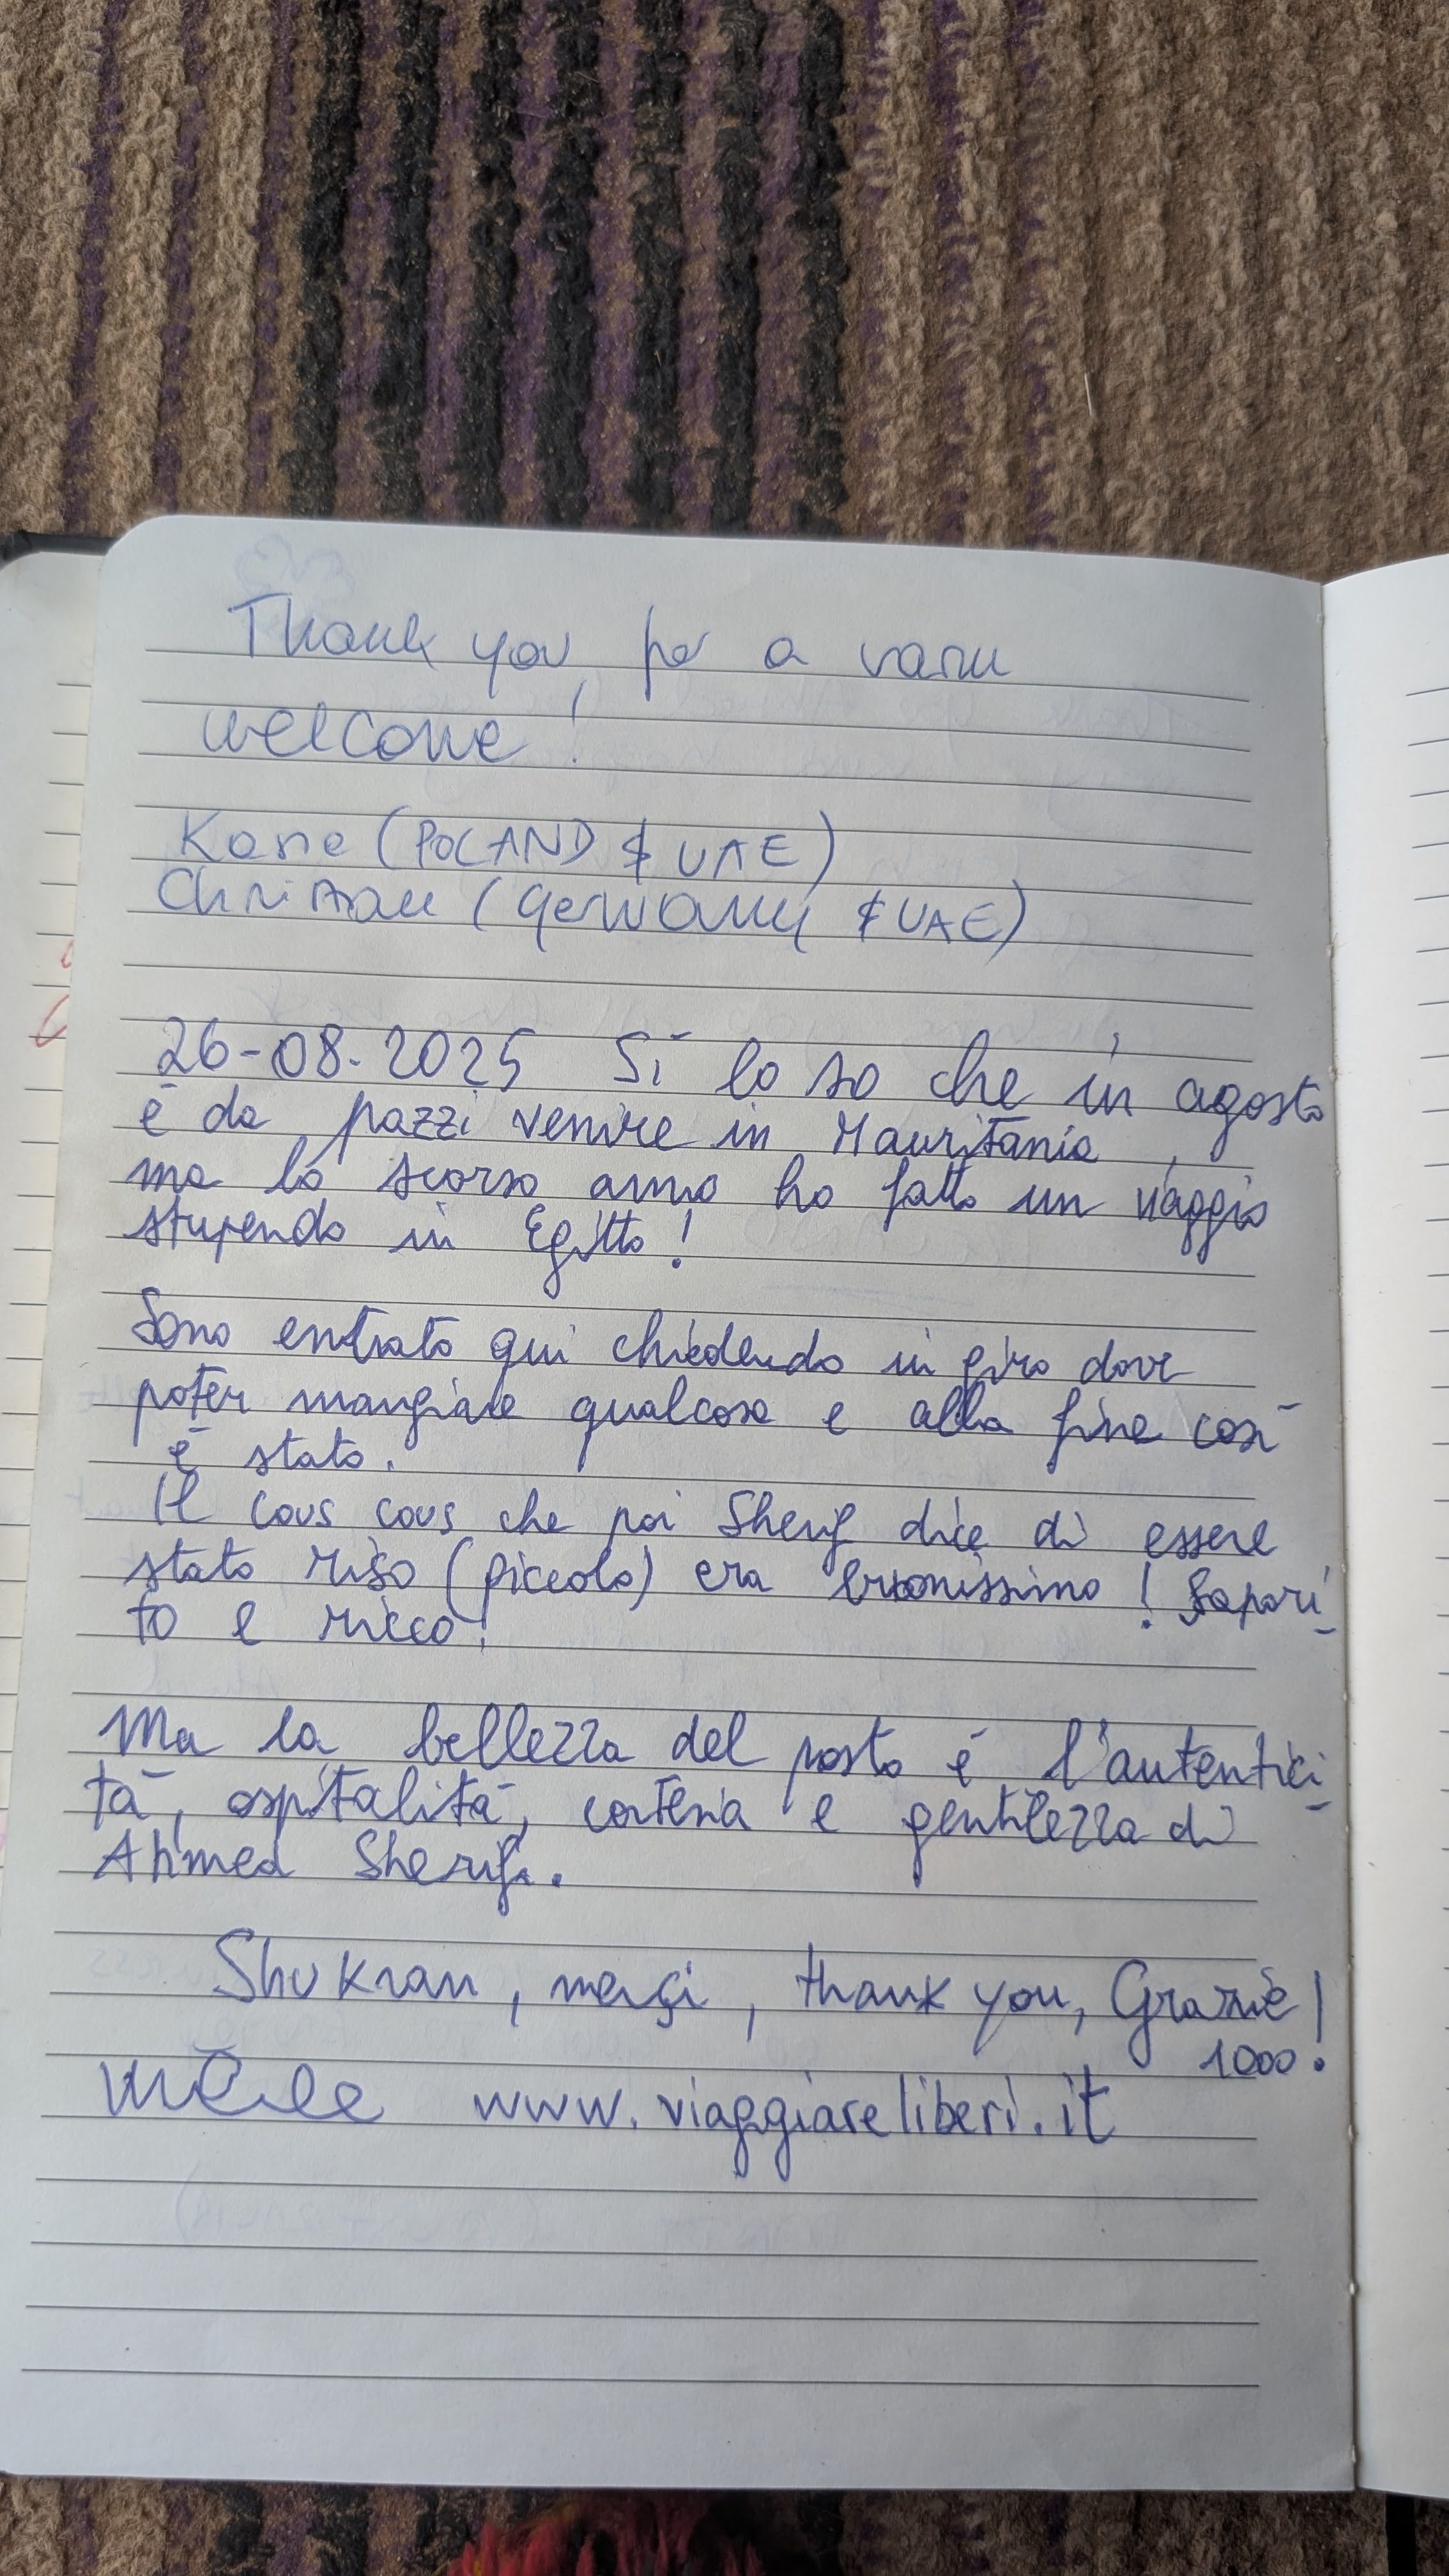 Thank you for a warm
welcome!
Kasie (POLAND & UAE)
Christian (Germany & UAE)
26-08.2025 Sí lo so che in agosto
é da pazzi venire in Mauritania,
ma lo scorso anno ho fatto un viaggio
stupendo in Egitto!
Sono entrato qui chiedendo in giro dove
poter mangiare qualcosa e alla fine cosí
é stato.
Il cous cous che poi Sherif dice di essere
stato riso (piccolo) era buonissimo! Sapori
to e ricco!
Ma la bellezza del posto é l'autentici
tá, ospitalitá, cortesia e gentilezza di
Ahmed Sherif.
Shukran, merçi, thank you, Grazie!
1000!
www.viaggiareliberi.it